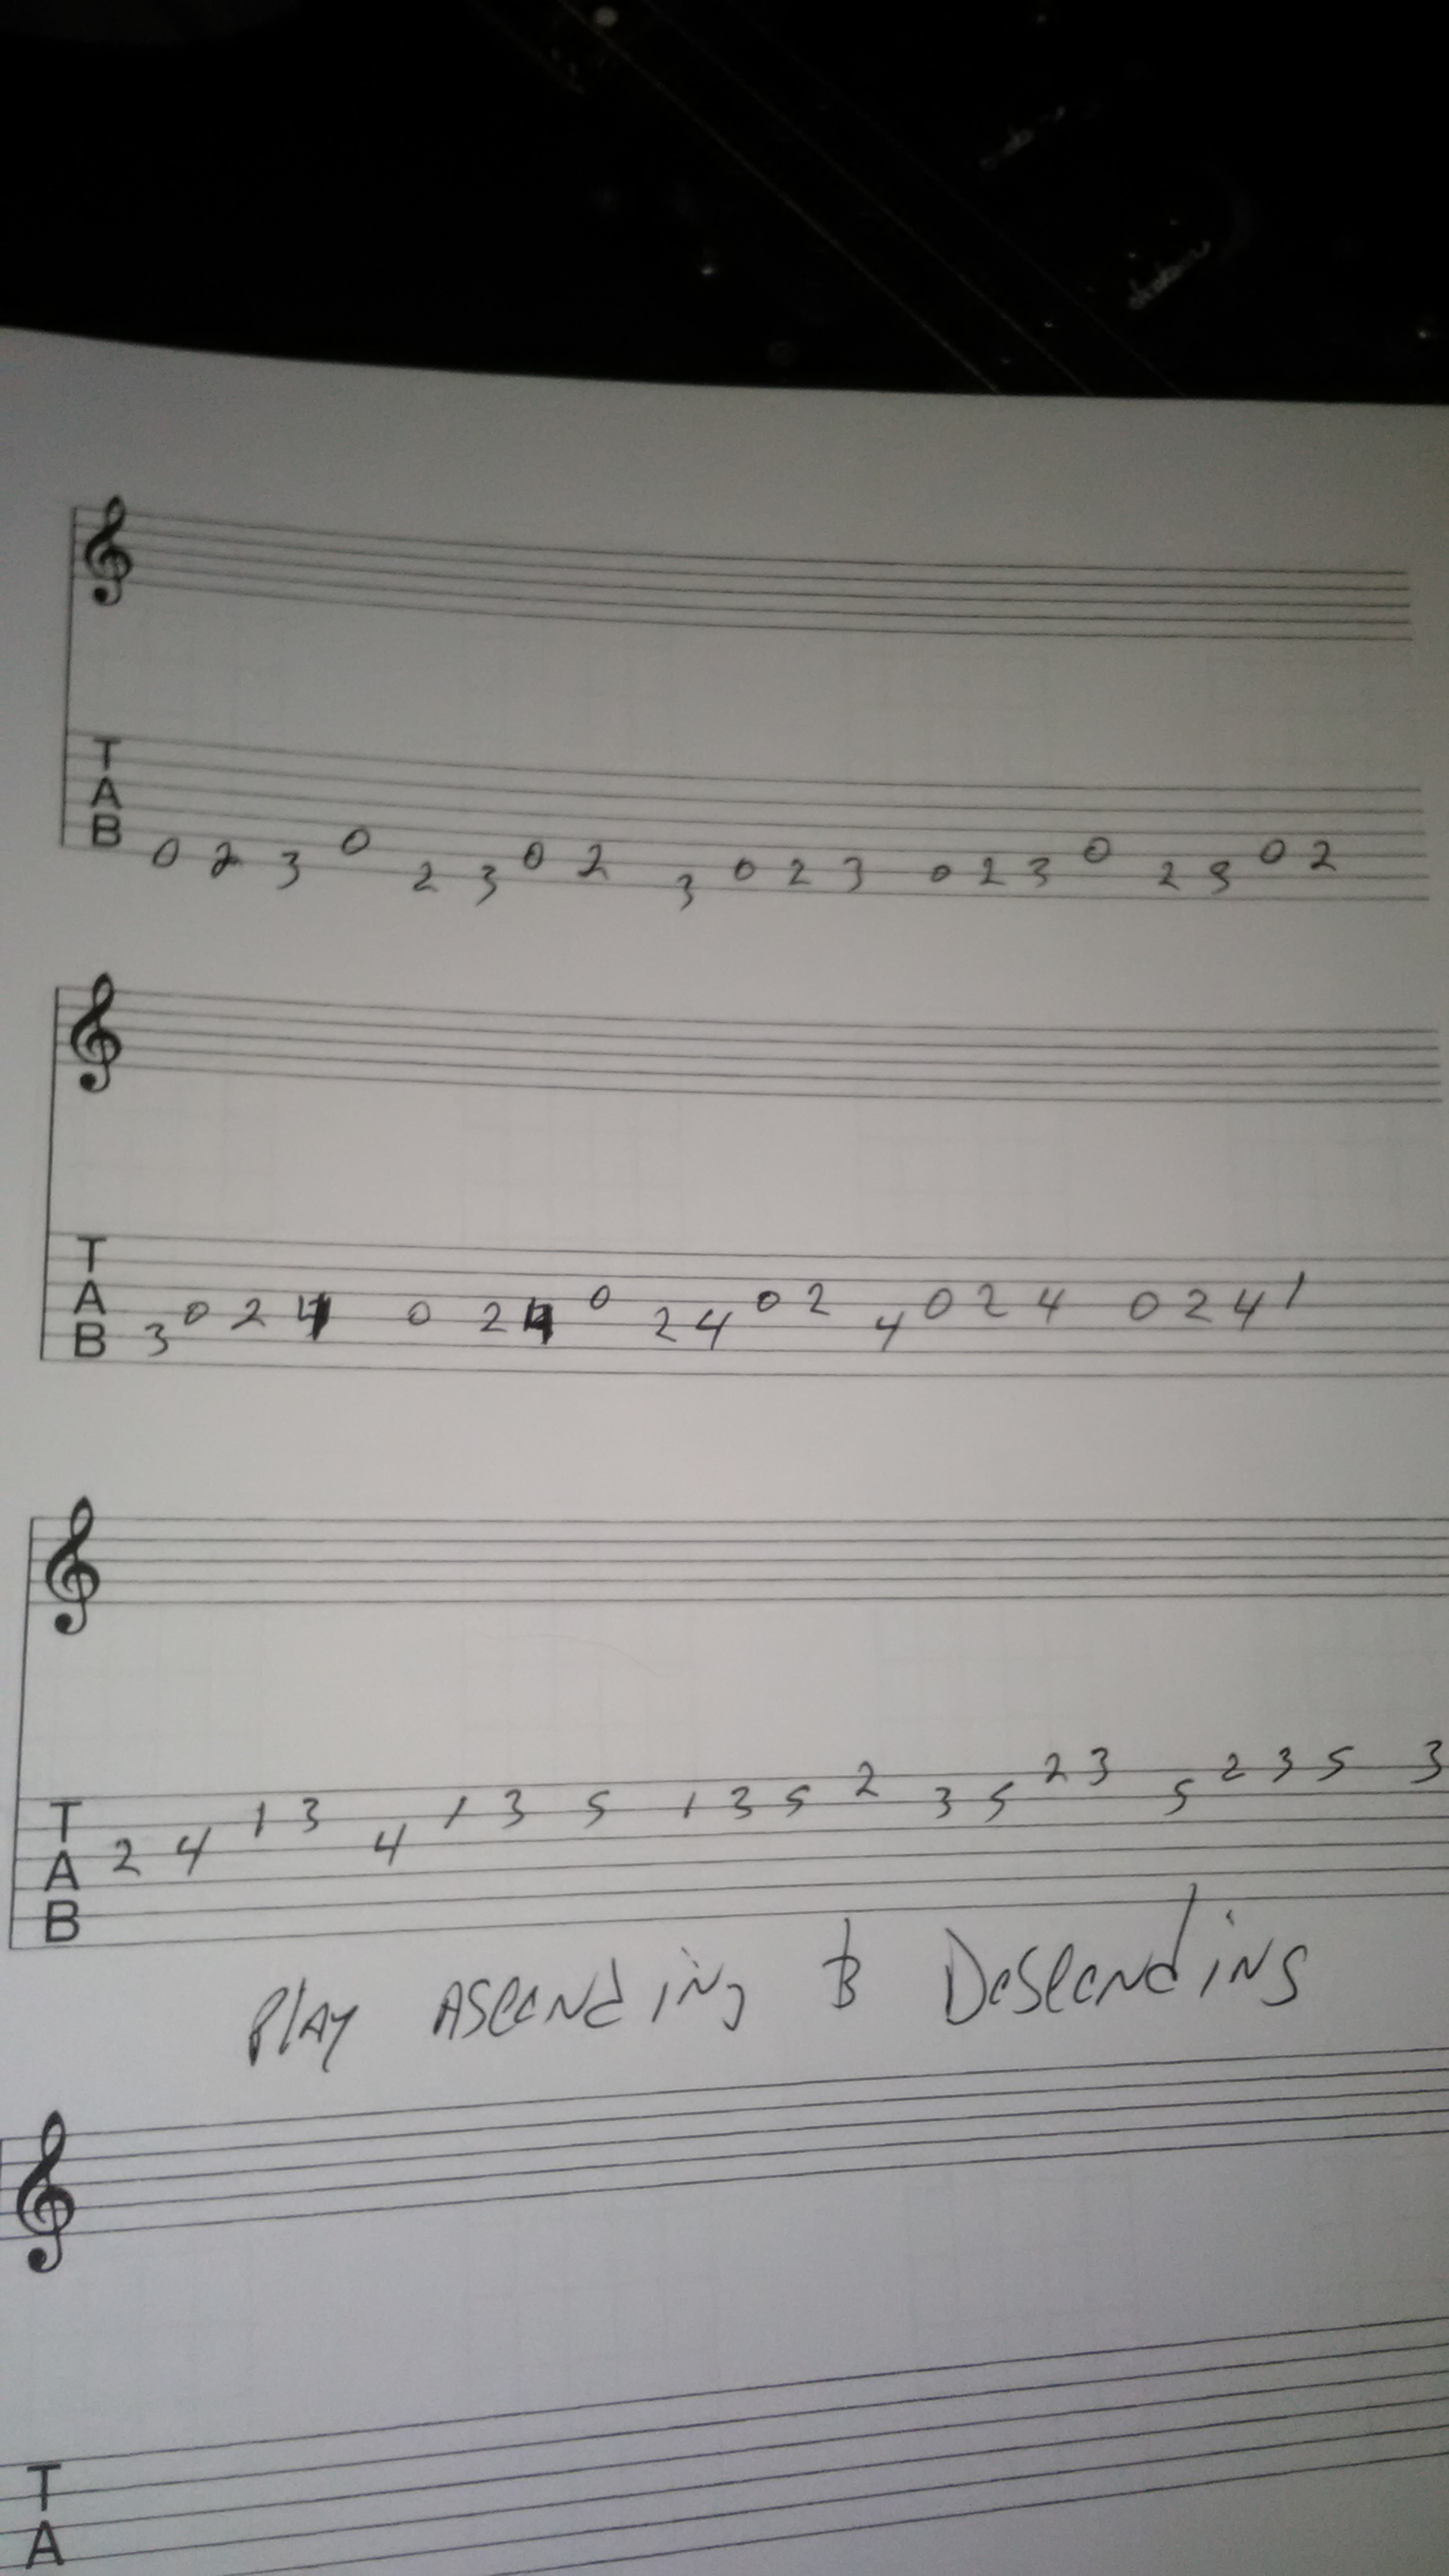 T
A
B
0 2 3 0 2 3 0 2 3 0 2 3 0 2 3 0 2 3 0 2
T
A
B
3 0 2 4 0 2 4 0 2 4 0 2 4 0 2 4 0 2 4 1
T
A
B
2 4 1 3 4 1 3 5 1 3 5 2 3 5 2 3 5 2 3 5 3
Play Ascending & Descending
T
A